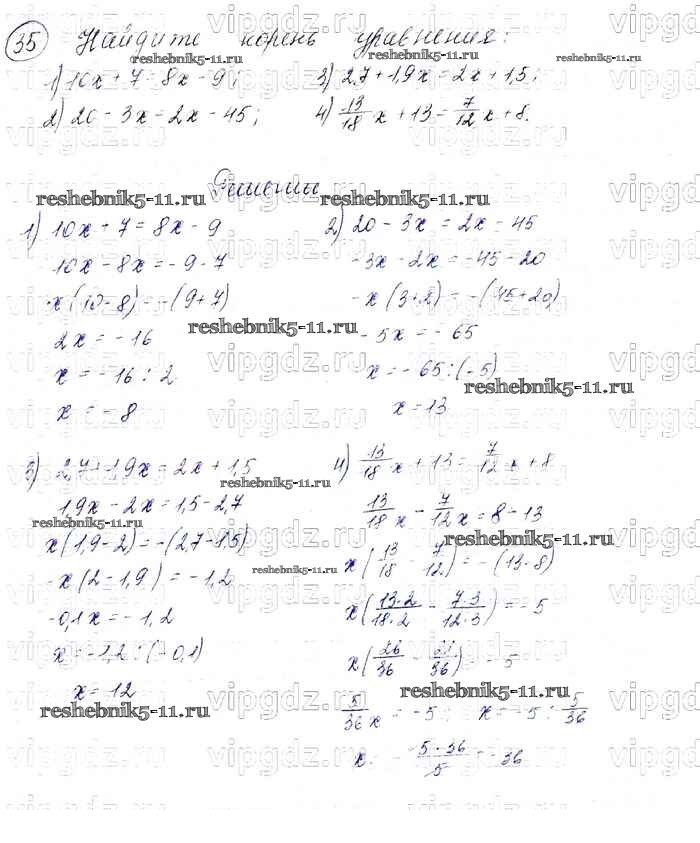 35 Найдите корень уравнения:
1) 10x + 7 = 8x - 9; 3) 2,7 + 1,9x = 2x + 1,5;
2) 20 - 3x = 2x - 45; 4) 13/18 x + 13 = 7/12 x + 8.
Решение
1) 10x + 7 = 8x - 9
10x - 8x = -9 - 7
x(10 - 8) = -(9 + 7)
2x = -16
x = -16 : 2
x = -8
2) 20 - 3x = 2x - 45
-3x - 2x = -45 - 20
-x(3 + 2) = -(45 + 20)
-5x = -65
x = -65 : (-5)
x = 13
3) 2,7 + 1,9x = 2x + 1,5
1,9x - 2x = 1,5 - 2,7
x(1,9 - 2) = -(2,7 - 1,5)
-x(2 - 1,9) = -1,2
-0,1x = -1,2
x = -1,2 : (-0,1)
x = 12
4) 13/18 x + 13 = 7/12 x + 8
13/18 x - 7/12 x = 8 - 13
x(13/18 - 7/12) = -(13 - 8)
x(13·2/18·2 - 7·3/12·3) = -5
x(26/36 - 21/36) = -5
5/36 x = -5; x = -5 : 5/36
x = -5·36/5 = -36
reshebnik5-11.ru
vipgdz.ru